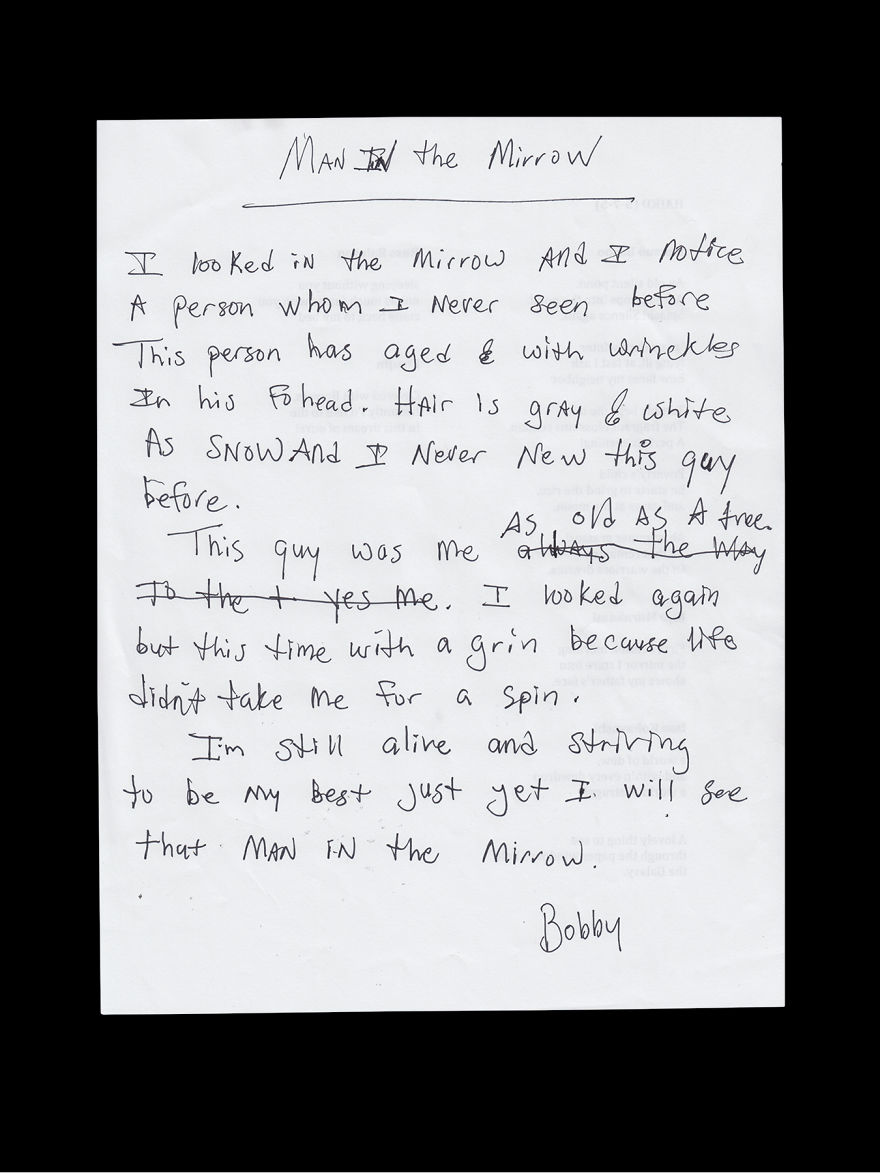 MAN IN the Mirrow
I looked iN the Mirrow ANd I Notice
A person whom I Never seen before
This person has aged & with wrinckles
In his Fohead. HAir is grAy & white
As SNOW ANd I Never New this guy
before.
As old AS A tree.
This guy was me always the way
To the t yes me. I looked again
but this time with a grin because life
didn't take me for a spin.
I'm still alive and striving
to be my best just yet I will see
that MAN IN the Mirrow.
Bobby